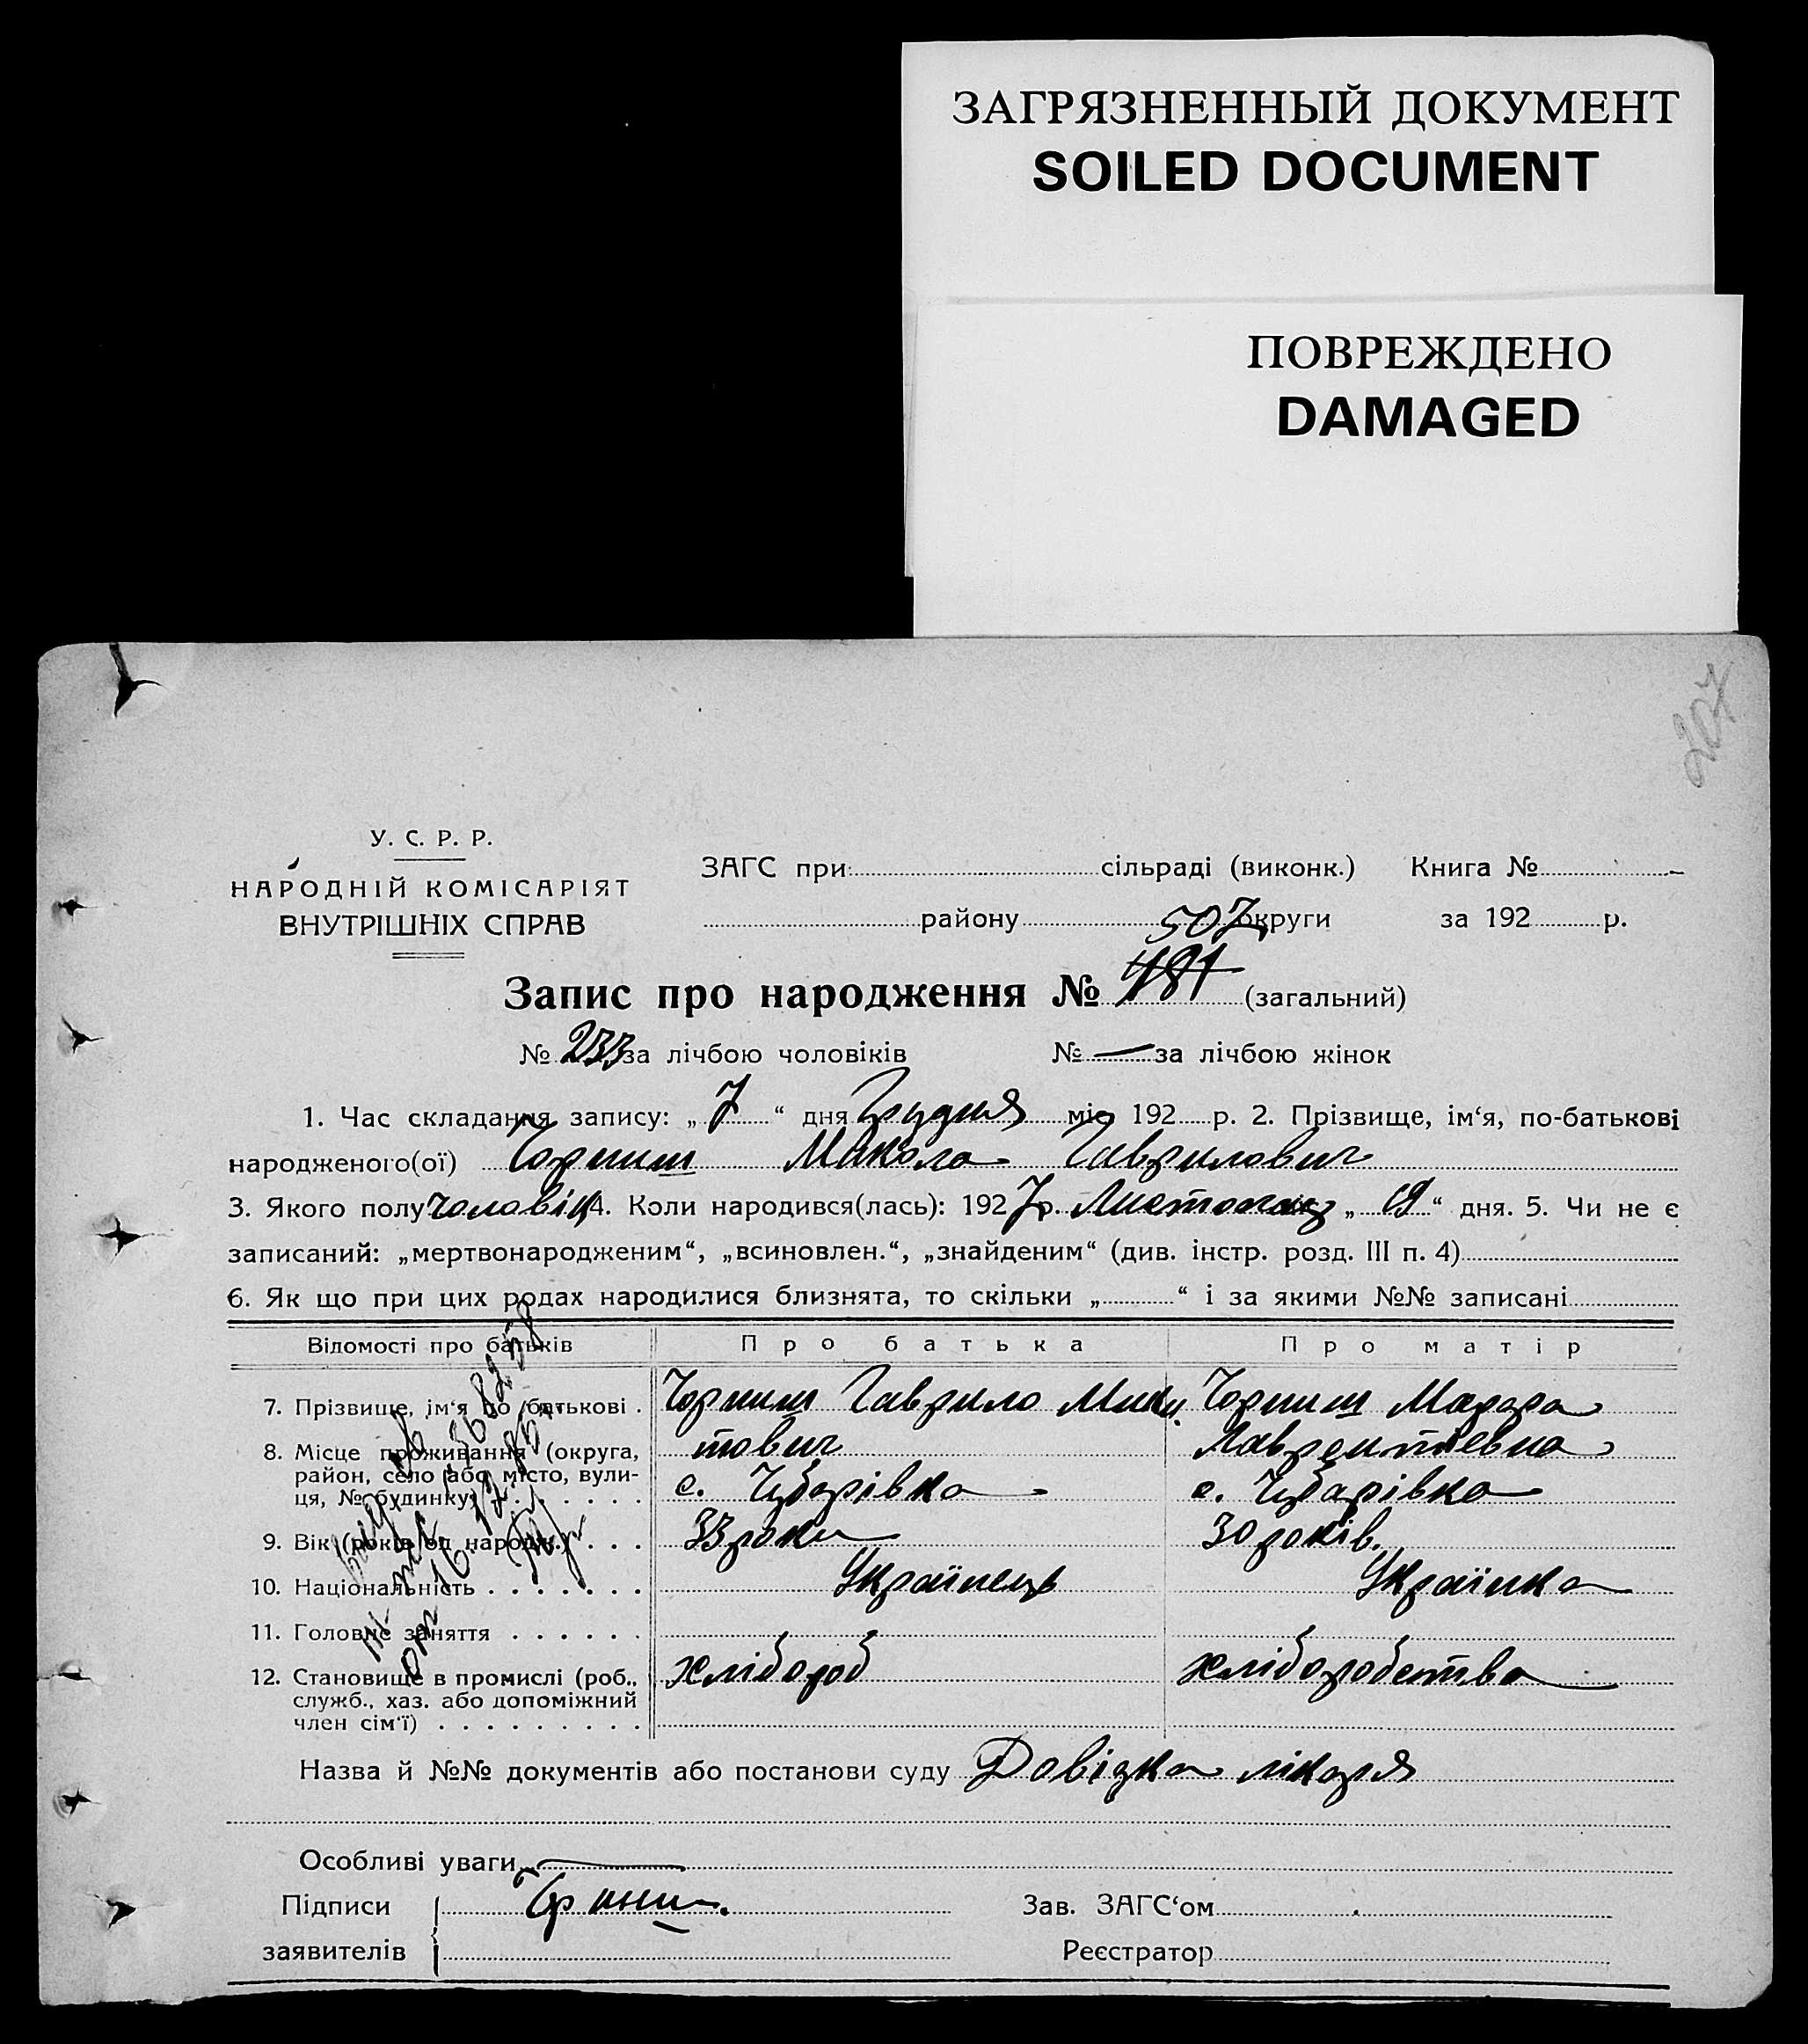 ЗАГРЯЗНЕННЫЙ ДОКУМЕНТ
SOILED DOCUMENT
ПОВРЕЖДЕНО
DAMAGED
207
У. С. Р. Р.
НАРОДНІЙ КОМІСАРІЯТ
ВНУТРІШНІХ СПРАВ
ЗАГС при сільраді (виконк.) Книга №
району округи за 192 р.
507
Запис про народження № 481 (загальний)
№ 233 за лічбою чоловіків № — за лічбою жінок
1. Час складання запису: „ 7 “ дня Грудня міс 192 р. 2. Прізвище, ім‘я, по-батькові
народженого(ої) Чорниш Микола Гаврилович
3. Якого полу чоловік 4. Коли народився(лась): 192 7 р. Листопад „ 19 “ дня. 5. Чи не є
записаний: „мертвонародженим“, „всиновлен.“, „знайденим“ (див. інстр. розд. III п. 4)
6. Як що при цих родах народилися близнята, то скільки „ “ і за якими №№ записані
Відомості про батьків Про батька Про матір
7. Прізвище, ім‘я по батькові . Чорниш Гаврило Мики Чорниш Мадара
8. Місце проживання (округа, тович Лаврентіевна
район, село або місто, вули-
ця, № будинку) с. Чубарівка с. Чубарівка
9. Вік (років од народж.) . . . 33 роки 30 років.
10. Національність . . . . . . . Українець Українка
11. Головне заняття . . . . . .
12. Становище в промислі (роб., хлібороб хліборобство
служб., хаз. або допоміжний
член сім‘ї) . . . . . . . . .
Назва й №№ документів або постанови суду Довізка лікаря
Особливі уваги
Підписи Чорниш.
заявителів
Зав. ЗАГС‘ом
Реєстратор